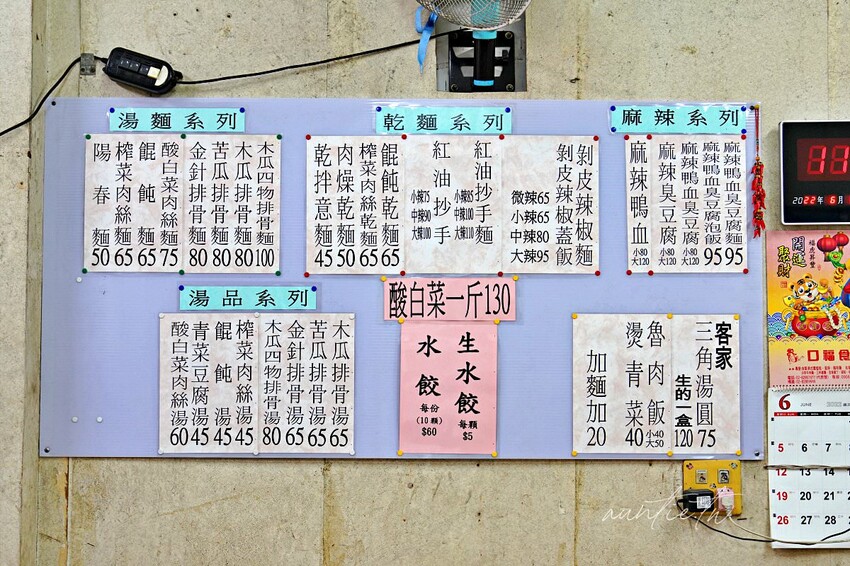 湯麵系列
陽春麵50
榨菜肉絲麵65
餛飩麵65
酸白菜肉絲麵75
金針排骨麵80
苦瓜排骨麵80
木瓜排骨麵80
木瓜四物排骨麵100
乾麵系列
乾拌意麵45
肉燥乾麵50
榨菜肉絲乾麵65
餛飩乾麵65
紅油抄手
小辣75
中辣90
大辣100
紅油抄手麵
小辣85
中辣100
大辣110
剝皮辣椒蓋飯
剝皮辣椒麵
微辣65
小辣65
中辣80
大辣95
麻辣系列
麻辣鴨血
小80
大120
麻辣臭豆腐
小80
大120
麻辣鴨血臭豆腐
小80
大120
麻辣鴨血臭豆腐泡飯95
麻辣鴨血臭豆腐麵95
湯品系列
酸白菜肉絲湯60
青菜豆腐湯45
餛飩湯45
榨菜肉絲湯45
木瓜四物排骨湯80
金針排骨湯65
苦瓜排骨湯65
木瓜排骨湯65
酸白菜一斤130
水餃
每份
(10顆)
$60
生水餃
每顆
$5
加麵加20
燙青菜40
魯肉飯
小40
大50
客家
三角湯圓75
生的一盒120
11
2022年 6月
開運
聚財
福虎昇豐
口福食
6
JUNE
2022
5 6 7
12 13 14
19 20 21
26 27 28
auntie.tw